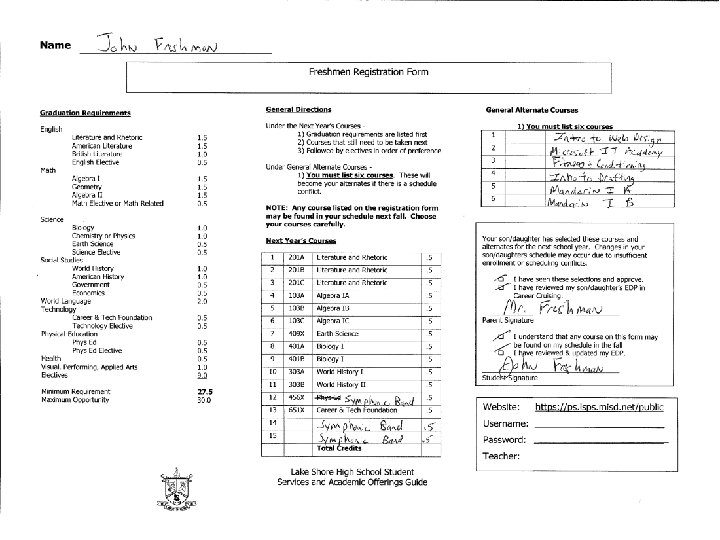 Name John Freshman
Freshmen Registration Form
Graduation Requirements
English
Literature and Rhetoric 1.5
American Literature 1.5
British Literature 1.0
English Elective 0.5
Math
Algebra I 1.5
Geometry 1.5
Algebra II 1.5
Math Elective or Math Related 0.5
Science
Biology 1.0
Chemistry or Physics 1.0
Earth Science 0.5
Science Elective 0.5
Social Studies
World History 1.0
American History 1.0
Government 0.5
Economics 0.5
World Language 2.0
Technology
Career & Tech Foundation 0.5
Technology Elective 0.5
Physical Education
Phys Ed 0.5
Phys Ed Elective 0.5
Health 0.5
Visual, Performing, Applied Arts 1.0
Electives 8.0
Minimum Requirement 27.5
Maximum Opportunity 30.0
General Directions
Under the Next Year's Courses -
1) Graduation requirements are listed first
2) Courses that still need to be taken next
3) Followed by electives in order of preference
Under General Alternate Courses -
1) You must list six courses. These will
become your alternates if there is a schedule
conflict.
NOTE: Any course listed on the registration form
may be found in your schedule next fall. Choose
your courses carefully.
Next Year's Courses
1 201A Literature and Rhetoric .5
2 201B Literature and Rhetoric .5
3 201C Literature and Rhetoric .5
4 103A Algebra IA .5
5 103B Algebra IB .5
6 103C Algebra IC .5
7 403X Earth Science .5
8 401A Biology I .5
9 401B Biology I .5
10 303A World History I .5
11 303B World History II .5
12 456X Physics Symphonic Band .5
13 651X Career & Tech Foundation .5
14 Symphonic Band .5
15 Symphonic Band .5
Total Credits
Lake Shore High School Student
Services and Academic Offerings Guide
General Alternate Courses
1) You must list six courses
1 Intro to Web Design
2 Microsoft IT Academy
3 Fitness & Conditioning
4 Intro to Drafting
5 Mandarin I A
6 Mandarin I B
Your son/daughter has selected these courses and
alternates for the next school year. Changes in your
son/daughter's schedule may occur due to insufficient
enrollment or scheduling conflicts.
I have seen these selections and approve.
I have reviewed my son/daughter's EDP in
Career Cruising.
Mr. Freshman
Parent Signature
I understand that any course on this form may
be found on my schedule in the fall
I have reviewed & updated my EDP.
John Freshman
Student Signature
Website: https://ps.lsps.misd.net/public
Username:
Password:
Teacher: